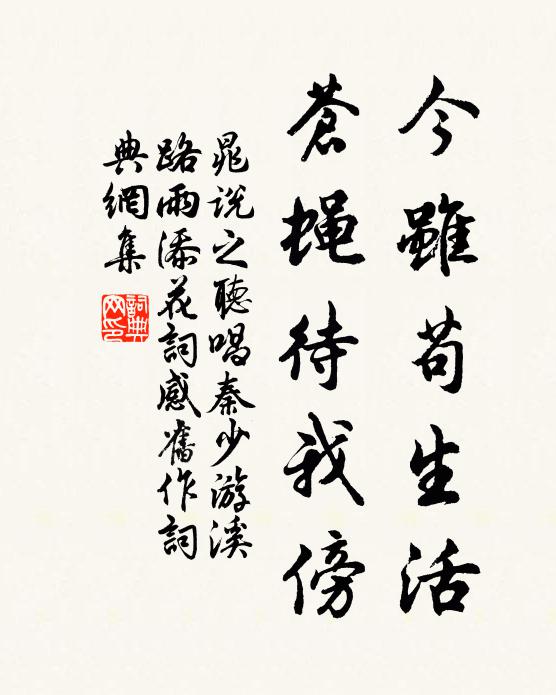 今雖苟生活
蒼蝇待我傍
晁說之聽唱秦少游溪
路雨添花詞感舊作詞
典網集
詞典
网印